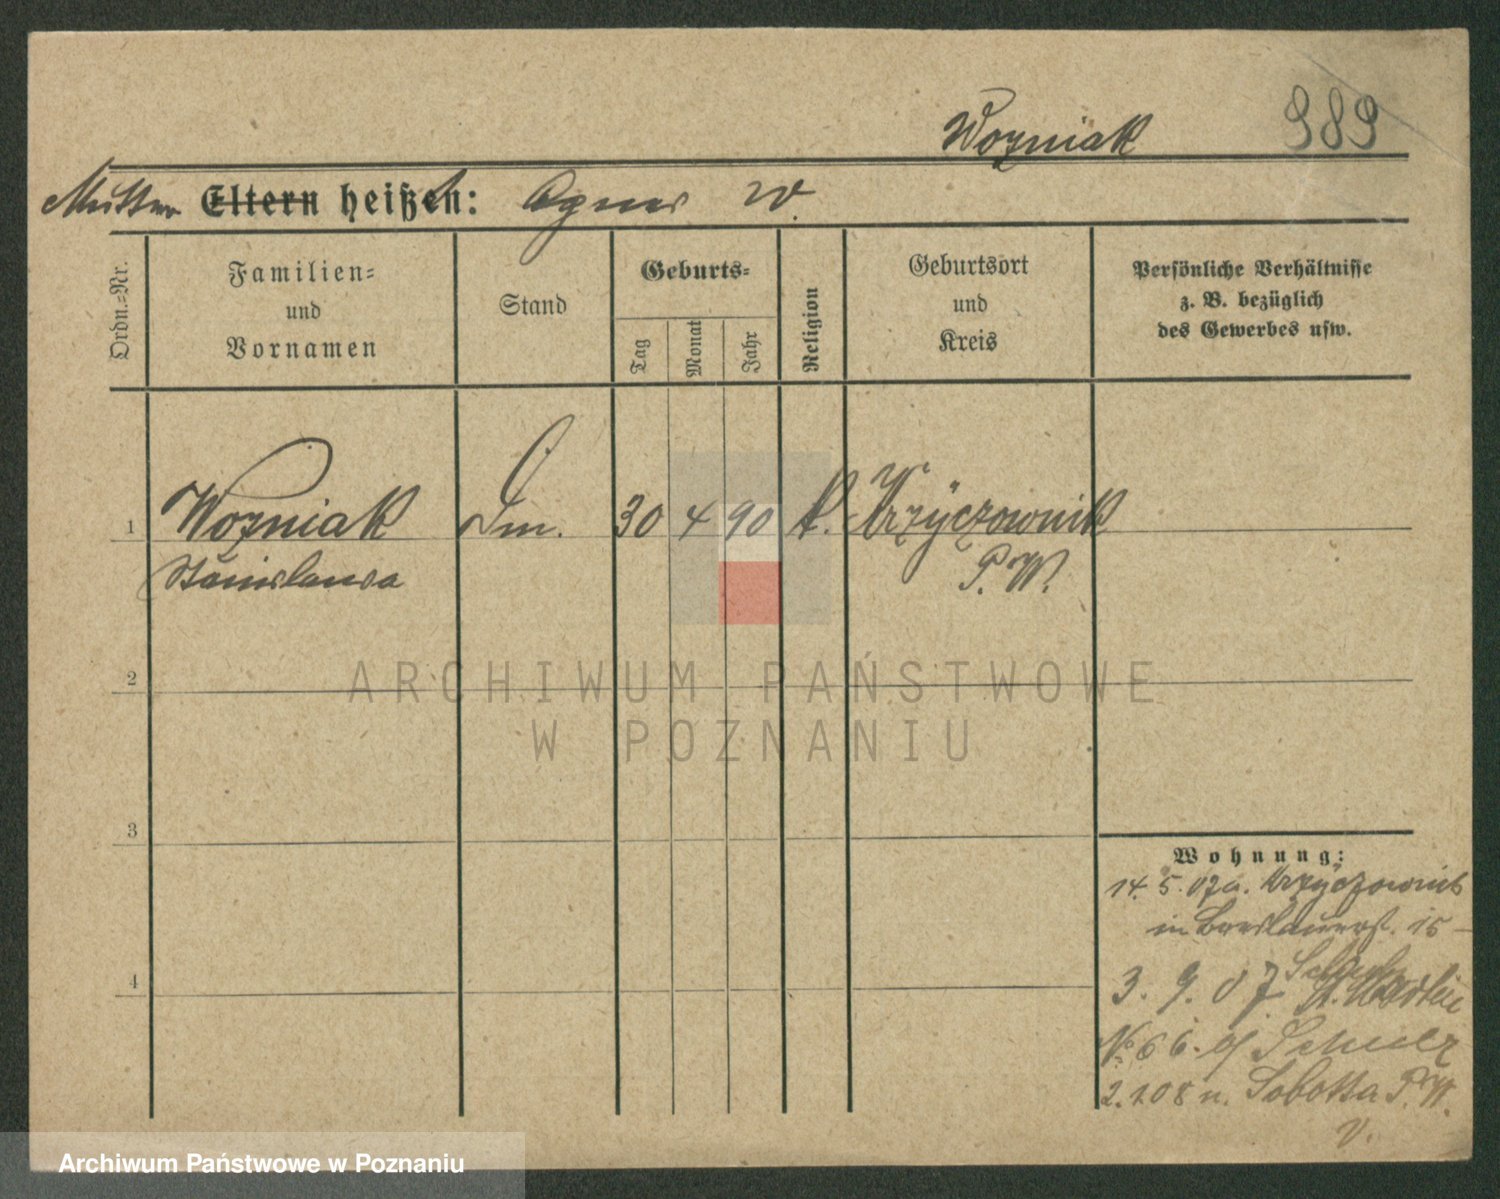 Wozniak 989
Mutter Eltern heißen: Agnes W.
Ordn.=Nr.
Familien=
und
Vornamen
Stand
Geburts=
Tag
Monat
Jahr
Religion
Geburtsort
und
Kreis
Persönliche Verhältnisse
z. B. bezüglich
des Gewerbes usw.
1 Wozniak 30 4 90 k. Krzyczownik
Stanislawa P. W.
2
3
4
Wohnung:
14. 5. 07 a. Krzyczownik
in Breslauerst. 15
3. 9. 07
No 66. Schulz
2.1.08 n. Sobotta P. W.
V.
ARCHIWUM PAŃSTWOWE
W POZNANIU
Archiwum Państwowe w Poznaniu